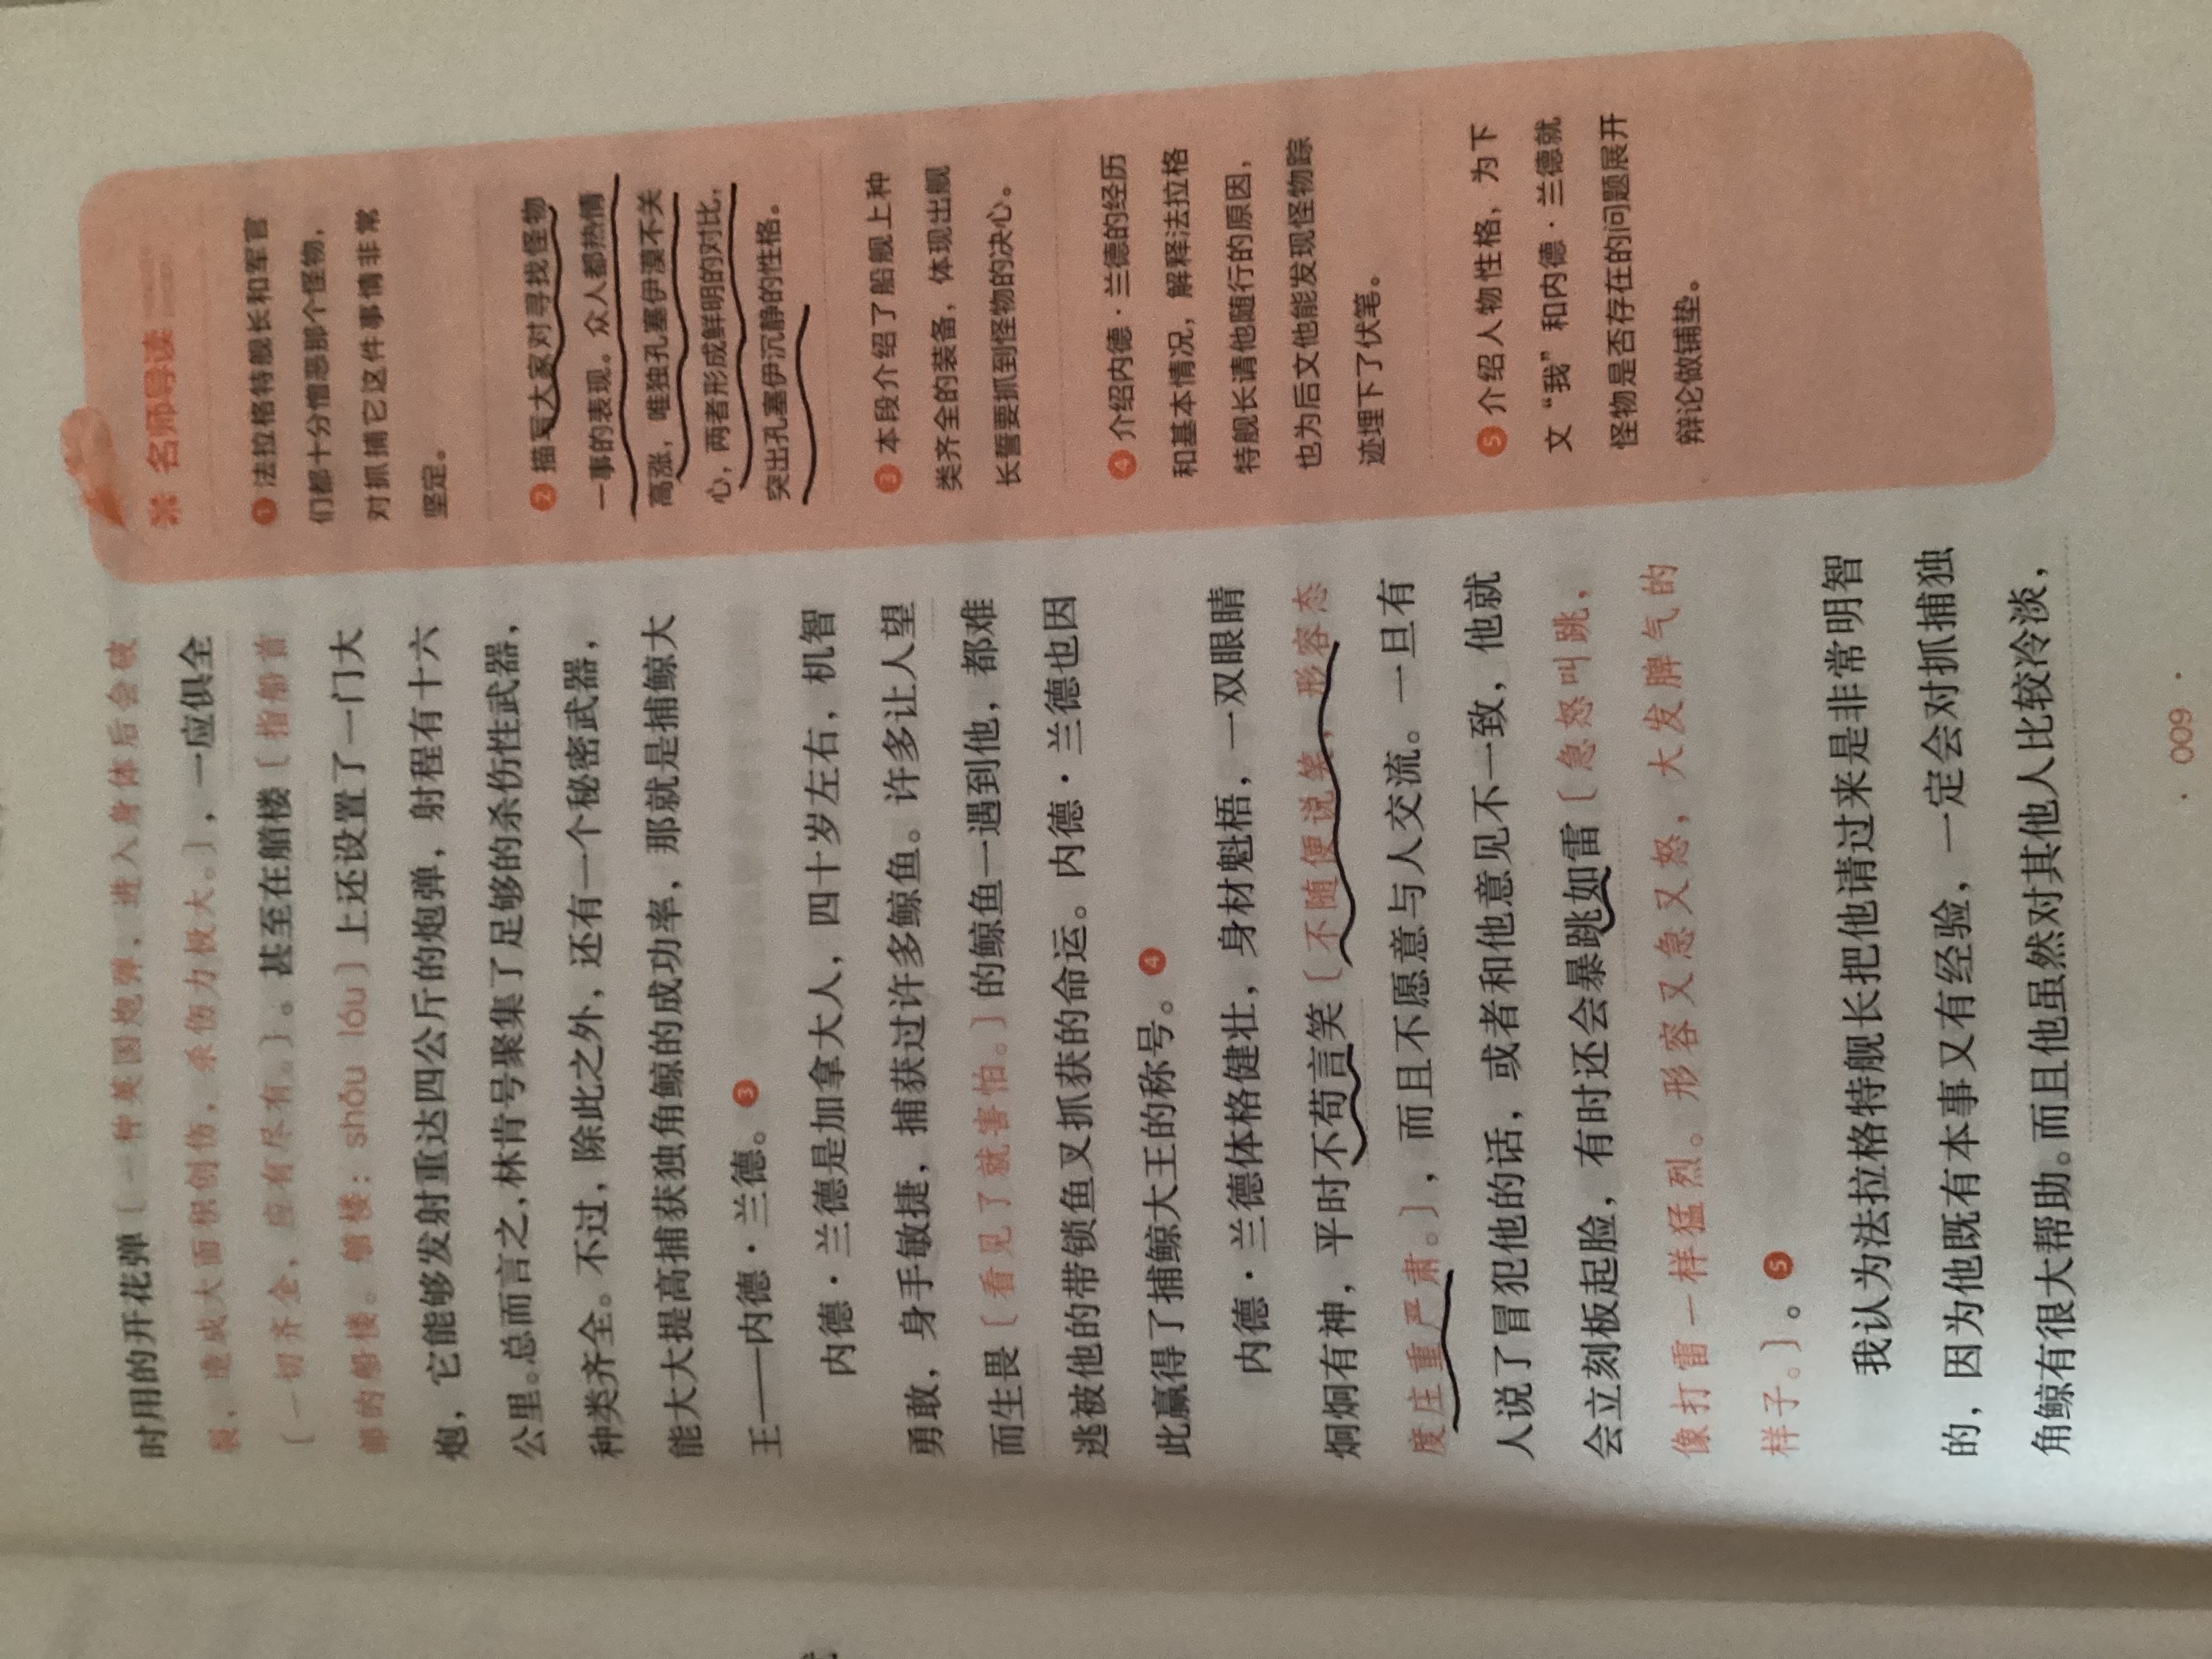 时用的开花弹〔一种英国炮弹，进入身体后会破
裂，造成大面积创伤，杀伤力极大。〕，一应俱全
〔一切齐全，应有尽有。〕。甚至在艏楼〔指船首
部的船楼。艏楼：shǒu lóu〕上还设置了一门大
炮，它能够发射重达四公斤的炮弹，射程有十六
公里。总而言之，林肯号聚集了足够的杀伤性武器，
种类齐全。不过，除此之外，还有一个秘密武器，
能大大提高捕获独角鲸的成功率，那就是捕鲸大
王——内德·兰德。❸
内德·兰德是加拿大人，四十岁左右，机智
勇敢，身手敏捷，捕获过许多鲸鱼。许多让人望
而生畏〔看见了就害怕。〕的鲸鱼一遇到他，都难
逃被他的带锁鱼叉抓获的命运。内德·兰德也因
此赢得了捕鲸大王的称号。❹
内德·兰德体格健壮，身材魁梧，一双眼睛
炯炯有神，平时不苟言笑〔不随便说笑，形容态
度庄重严肃。〕，而且不愿意与人交流。一旦有
人说了冒犯他的话，或者和他意见不一致，他就
会立刻板起脸，有时还会暴跳如雷〔急怒叫跳，
像打雷一样猛烈。形容又急又怒，大发脾气的
样子。〕。❺
我认为法拉格特舰长把他请过来是非常明智
的，因为他既有本事又有经验，一定会对抓捕独
角鲸有很大帮助。而且他虽然对其他人比较冷淡，
名师导读
❶ 法拉格特舰长和军官
们都十分憎恶那个怪物，
对抓捕它这件事情非常
坚定。
❷ 描写大家对寻找怪物
一事的表现。众人都热情
高涨，唯独孔塞伊漠不关
心，两者形成鲜明的对比，
突出孔塞伊沉静的性格。
❸ 本段介绍了船舰上种
类齐全的装备，体现出舰
长誓要抓到怪物的决心。
❹ 介绍内德·兰德的经历
和基本情况，解释法拉格
特舰长请他随行的原因，
也为后文他能发现怪物踪
迹埋下了伏笔。
❺ 介绍人物性格，为下
文“我”和内德·兰德就
怪物是否存在的问题展开
辩论做铺垫。
· 009 ·